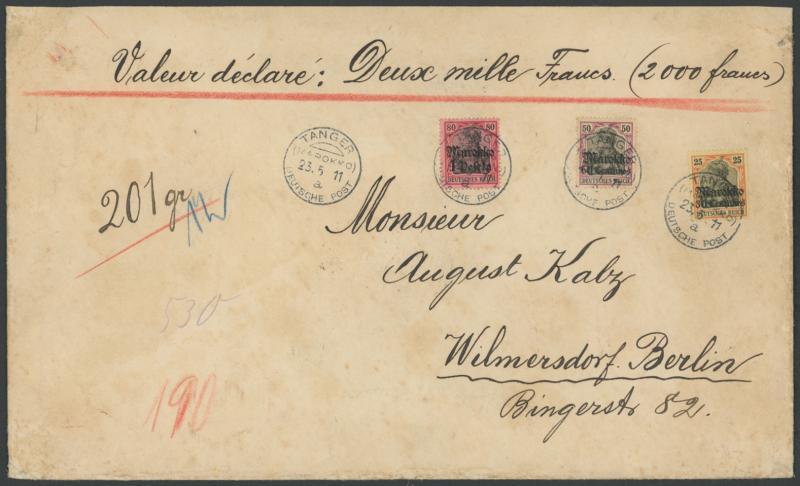 Valeur déclaré: Deux mille Francs. (2000 francs)
TANGER
(MAROKKO)
23.5 11
a
DEUTSCHE POST
80 80
Marokko
1 Peseta
DEUTSCHES REICH
50 50
Marokko
60 Centimos
DEUTSCHES REICH
25 25
Marokko
30 Centimos
DEUTSCHES REICH
TANGER
(MAROKKO)
23.5 11
a
DEUTSCHE POST
201 gr
Monsieur
August Kalz
530
Wilmersdorf. Berlin
190
Bingerstr 82.